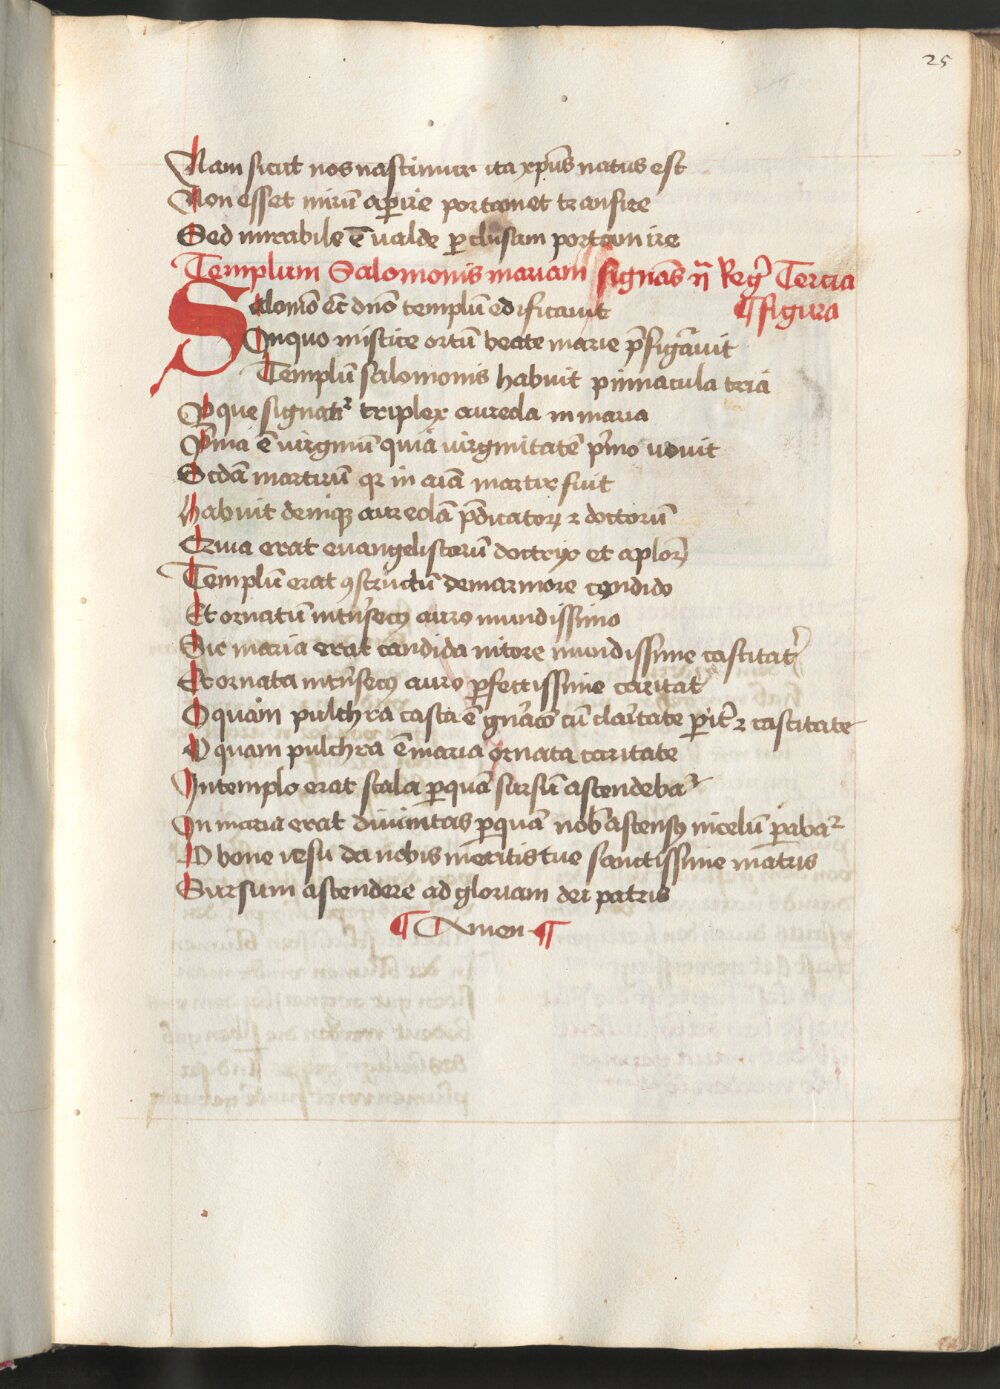 25
Nam sicut nos nascimur ita xp̄us natus est
Non esset mirū aꝑire portam et transire
Sed mirabile ē ualde ꝑ clusam portam ire
Templum Salomonis mariam signās Reḡ Tercia
¶ figura
Salomō dn̄o templū edificauit
In quo mistice ortū beate marie p̄figurauit
Templū salomonis habuit pinnacula tria
Per que signatᷣ triplex aureola in maria
P̄ma ē virginū quia uirginitatē p̄mo uouit
Scd̄a martirū qꝛ in aīa martir fuit
Habuit deniqꝫ aureolā p̄dicatoꝝ ⁊ doctorū
Quia erat euangelistarū doctrix et ap̄loꝝ
Templū erat ꝯstructū de marmore candido
Et ornatum int̄secꝰ auro mundissimo
Sic maria erat candida nitore mundissime castitat̄
Et ornata int̄secꝰ auro ꝑfectissime caritat̄
O quam pulchra casta ē gn̄aco cū clāitate ꝑit̄ ⁊ castitate
O quam pulchra ē maria ornata caritate
In templo erat scala ꝑ quā sursū ascendebaᷣ
In maria erat diuinitas ꝑ quā nob̄ ascensꝰ in celū ꝑabaᷣ
O bone iesu da nobis meritis tue sanctissime matris
Sursum ascendere ad gloriam dei patris
¶ Amen ¶